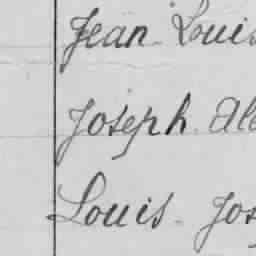 Jean Louis
Joseph
Louis